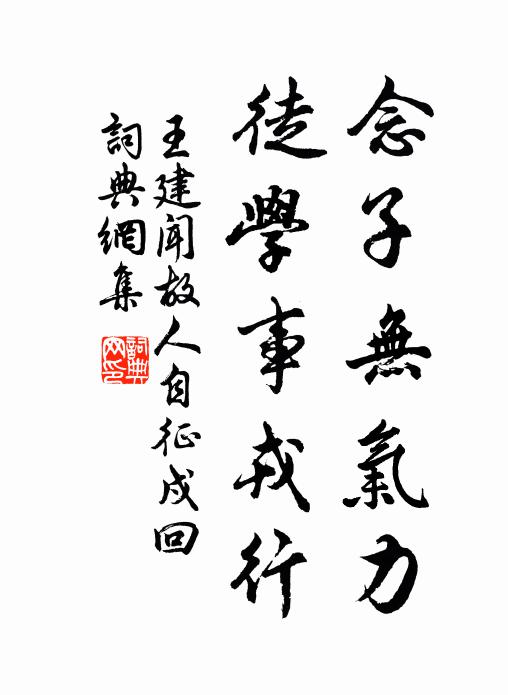 念子無氣力
徒學事戎行
王建聞故人自征戍回
詞典網集
詞典网印